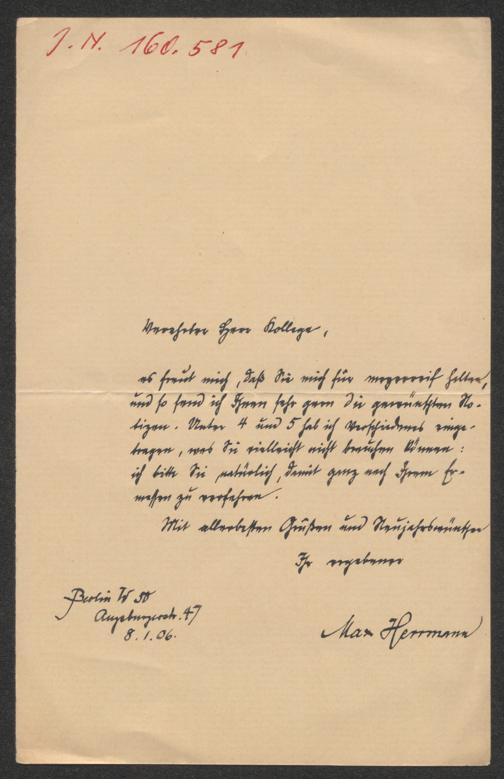 J. N. 160.581
Verehrter Herr Kollege,
es freut mich, daß Sie mich für meyerreif halten,
und so send ich Ihnen sehr gern die gewünschten No-
tizen. Unter 4 und 5 hab ich verschiedenes einge-
tragen, was Sie vielleicht nicht brauchen können:
ich bitte Sie natürlich, damit ganz nach Ihrem Er-
messen zu verfahren.
Mit allerbesten Grüßen und Neujahrswünschen
Ihr ergebener
Max Herrmann
Berlin W 50
Augsburgerstr. 47
8.1.06.